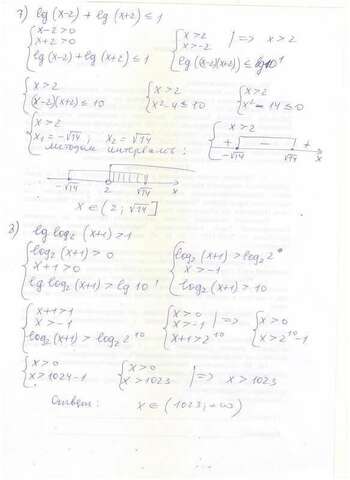 7) lg(x-2) + lg(x+2) ≤ 1
{ x-2>0
x+2>0
lg(x-2) + lg(x+2) ≤ 1
{ x>2
x>-2 | => x>2
lg((x-2)(x+2)) ≤ lg10¹
{ x>2
(x-2)(x+2) ≤ 10
{ x>2
x²-4 ≤ 10
{ x>2
x²-14 ≤ 0
{ x>2
x₁ = -√14 ; x₂ = √14
методом интервалов:
{ x>2
+ - +
-√14 √14 x
-√14 2 √14 x
x ∈ (2; √14]
8) lg log₂ (x+1) > 1
{ log₂ (x+1) > 0
x+1>0
lg log₂ (x+1) > lg 10¹
{ log₂ (x+1) > log₂ 2⁰
x>-1
log₂ (x+1) > 10
{ x+1>1
x>-1
log₂ (x+1) > log₂ 2¹⁰
{ x>0
x>-1 | =>
x+1>2¹⁰
{ x>0
x>2¹⁰-1
{ x>0
x>1024-1
{ x>0
x>1023 | => x>1023
Ответ: x ∈ (1023; +∞)